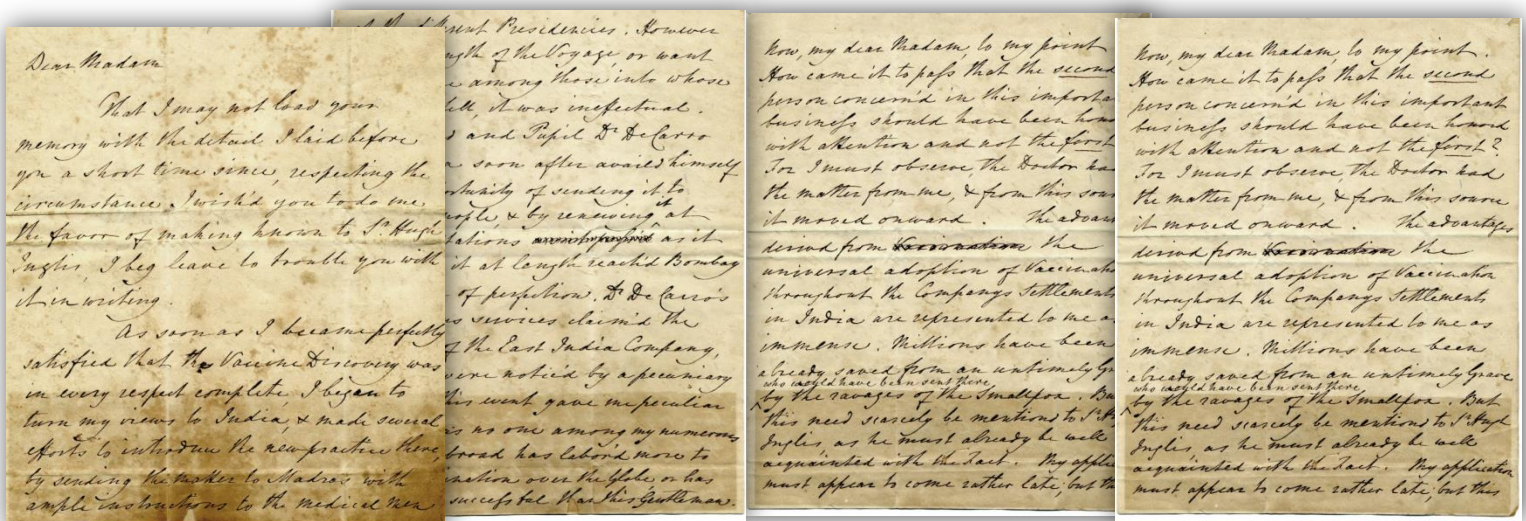 Dear Madam
That I may not load your
memory with the detail I laid before
you a short time since, respecting the
circumstance I wish'd you to do me
the favor of making known to Sr. Hugh
Inglis, I beg leave to trouble you with
it in writing.
As soon as I became perfectly
satisfied that the Vaccine Discovery was
in every respect complete, I began to
turn my views to India, & made several
efforts to introduce the new practice there,
by sending the matter to Madras with
ample instructions to the medical men
Presidencies. However
of the Voyage, or want
among those into whose
it was ineffectual.
and Pupil Dr. De Carro
soon after avail'd himself
of sending it to
& by renewing it at
as it
it at length reach'd Bombay
of perfection. Dr. De Carro's
services claim'd the
of the East India Company,
were notic'd by a pecuniary
this event gave me peculiar
is no one among my numerous
has labor'd more to
over the Globe or has
successful than this Gentleman.
Now, my dear Madam, to my point
How came it to pass that the second
person concern'd in this
business should have been
with attention and not the first
For I must observe, the Doctor had
the matter from me, & from this
it moved onward. The
deriv'd from Vaccination the
universal adoption of
throughout the Companys Settlements
in India are represented to me
immense. Millions have been
already saved from an untimely
who would have been sent there
by the ravages of the Smallpox.
this need scarcely be mentiond to Sr.
Inglis as he must already be well
acquainted with the Fact. My
must appear to come rather late, but
Now, my dear Madam, to my point.
How came it to pass that the second
person concern'd in this important
business should have been honord
with attention and not the first?
For I must observe, the Doctor had
the matter from me, & from this source
it moved onward. The advantages
deriv'd from Vaccination the
universal adoption of Vaccination
throughout the Companys Settlements
in India are represented to me as
immense. Millions have been
already saved from an untimely Grave
who would have been sent there
by the ravages of the Smallpox. But
this need scarcely be mentiond to Sr. Hugh
Inglis as he must already be well
acquainted with the Fact. My application
must appear to come rather late, but this